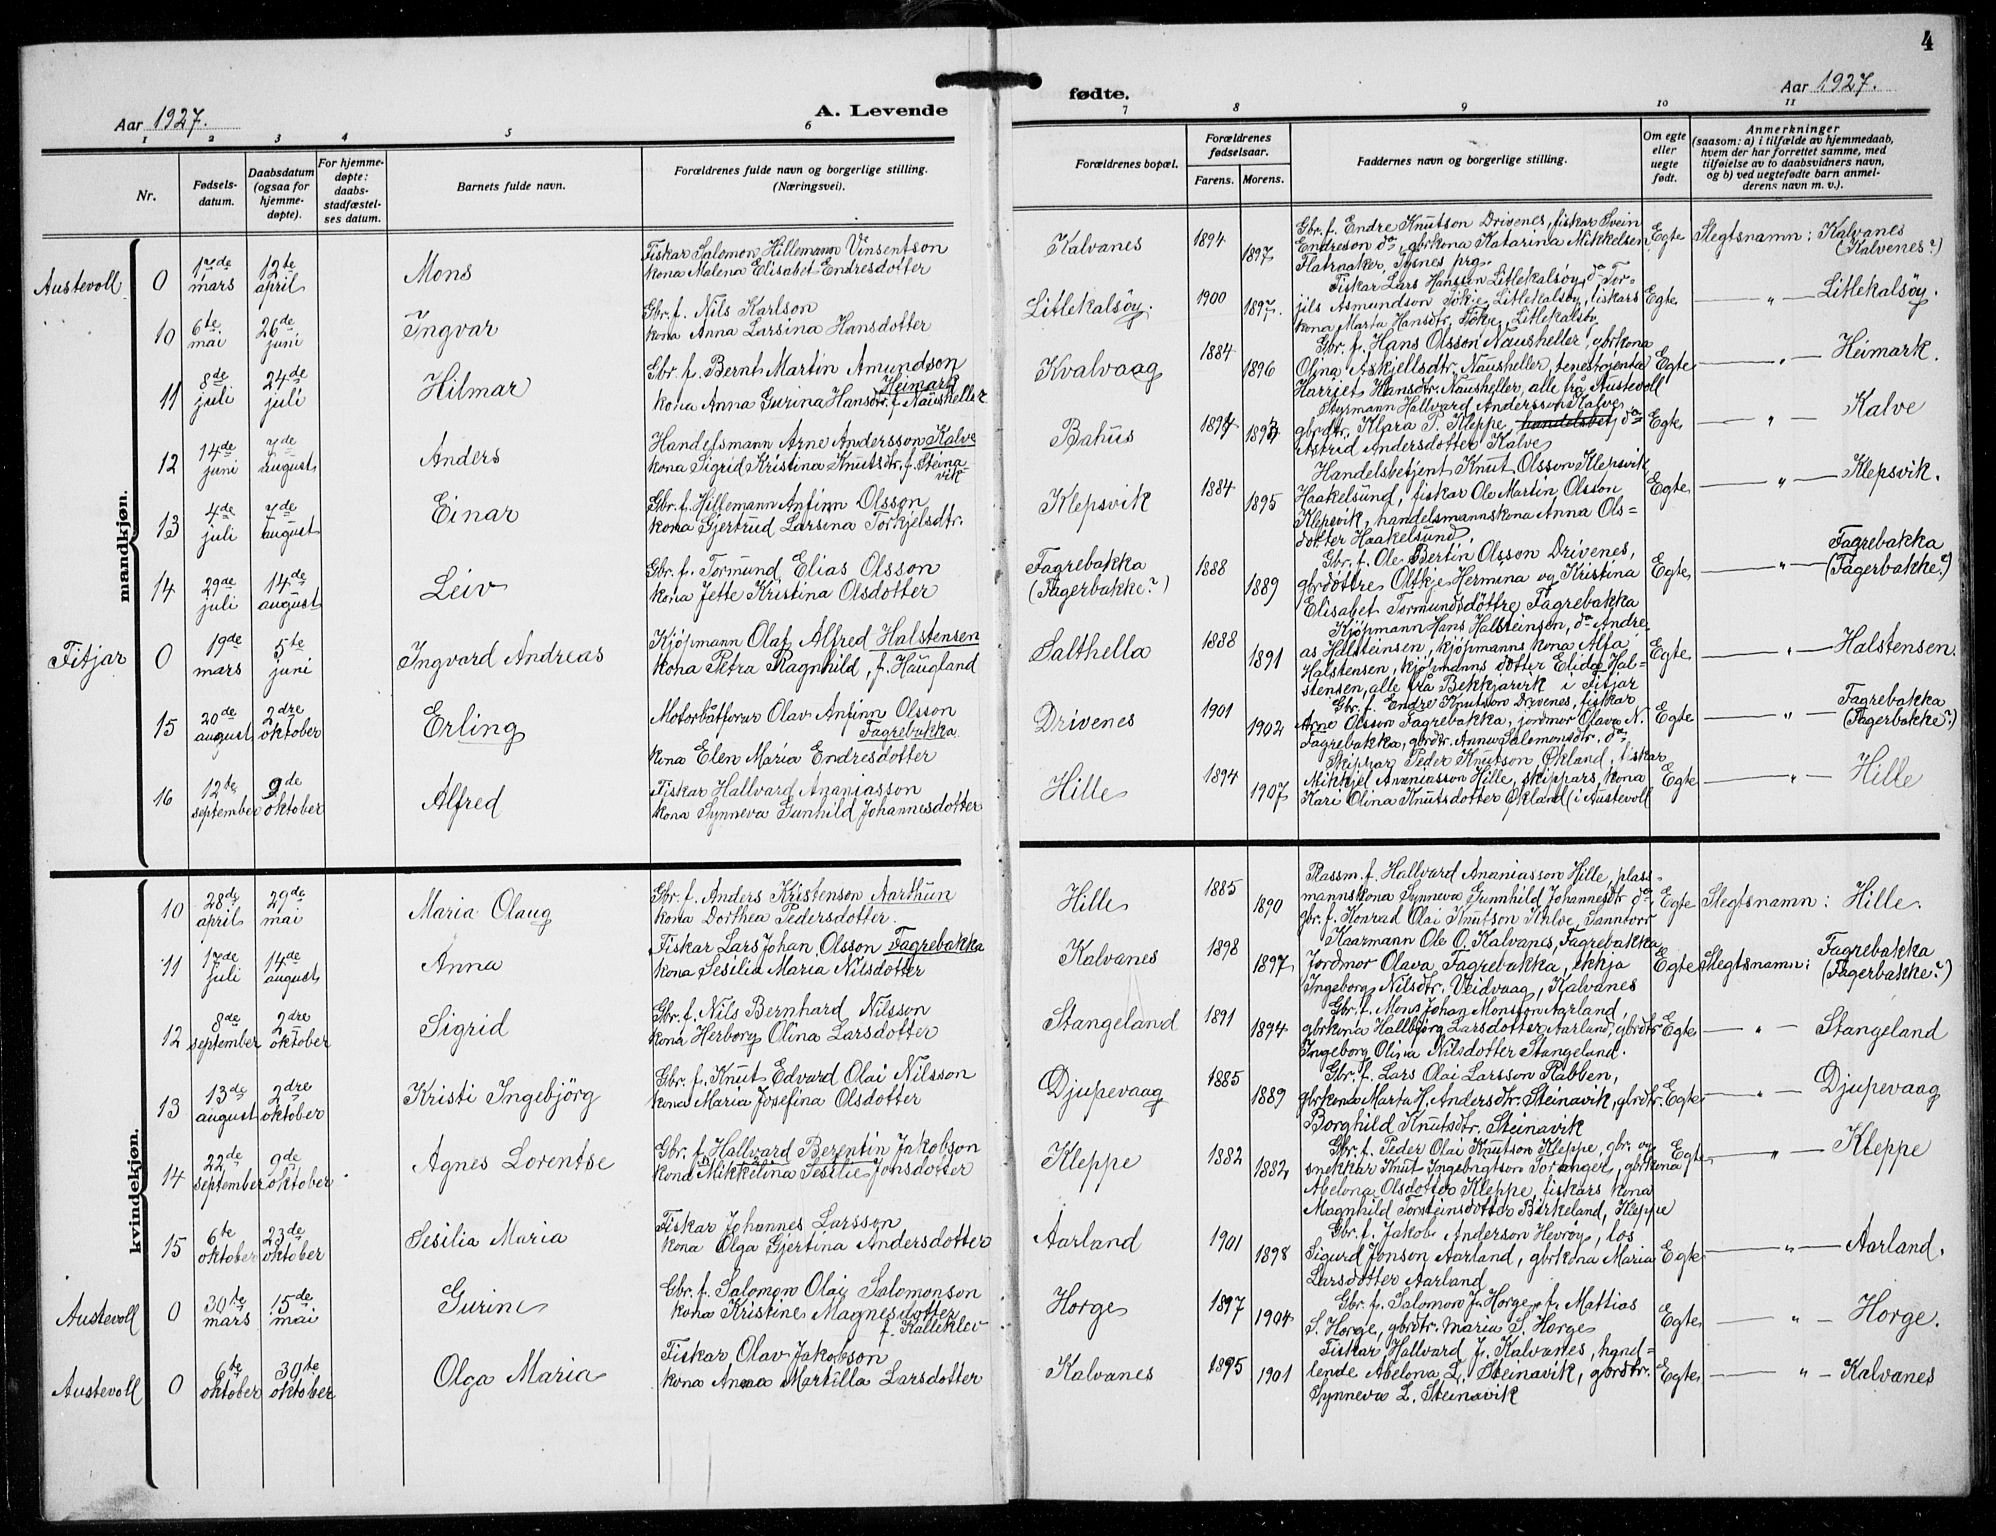 4
Aar 1927.
A. Levende
fødte.
Aar 1927.
1 2 3 4 5 6 7 8 9 10 11
Nr.
Fødsels-
datum.
Daabsdatum
(ogsaa for
hjemme-
døpte).
For hjemme-
døpte:
daabs-
stadfæstel-
ses datum.
Barnets fulde navn.
Forældrenes fulde navn og borgerlige stilling.
(Næringsvei).
Forældrenes bopæl.
Forældrenes
fødselsaar.
Farens. Morens.
Faddernes navn og borgerlige stilling.
Om egte
eller
uegte
født.
Anmerkninger
(saasom: a) i tilfælde av hjemmedaab,
hvem der har forrettet samme, med
tilføielse av to daabsvidners navn,
og b) ved uegtefødte barn anmel-
derens navn m. v.).
mandkjøn.
Austevoll 0 17de mars 12te april Mons
Fiskar Salomon Hillemann Vinsentson
kona Malena Elisabet Endresdotter
Kalvanes 1894 1897
Gbr. f. Endre Knutson Drivenes, fiskar Svein
Endreson do, gbrkona Katarina Mikkelsen
Flatraaker, Tysnes prg.
Egte Slegtsnamn: Kalvanes
(Kalvenes?)
10 6te mai 26de juni Ingvar
Gbr. f. Nils Karlson
kona Anna Larsina Hansdotter
Litlekalsøy. 1900 1897.
Fiskar Lars Hansen Litlekalsøy, do Tor-
jils Asmundson Tøkje, Litlekalsøy, fiskars
kona Marta Hansdtr. Tøkje, Litlekalsøy
Egte — " — Litlekalsøy.
11 8de juli 24de juli Hilmar
Gbr. f. Bernt Martin Amundson
Heimark
kona Anna Gurina Hansdtr. f. Nausheller
Kvalvaag 1884 1896
Gbr. f. Hans Olsson Nausheller, gbrkona
Olina Askjellsdtr. Nausheller, tenestojenta
Harriet Hansdtr. Nausheller, alle frå Austevoll
Egte — " — Heimark.
12 14de juni 7de august Anders
Handelsmann Arne Andersson Kalve
kona Sigrid Kristina Knutsdtr. f. Steina-
vik
Bakus 1894 1893
Styrmann Hallvard Andersson Kalve
gbrdtr. Klara P. Kleppe, handelsbetj do
Astrid Andersdotter Kalve
Egte — " — Kalve
13 4de juli 7de august Einar
Gbr. f. Hillemann Anfinn Olsson
kona Gjertrud Larsena Torkjelsdtr.
Klepsvik 1884 1895
Handelsbetjent Knut Olsson Klepsvik
Haakelsund, fiskar Ole Martin Olsson
Klepsvik, handelsmannskona Anna Ols-
dotter Haakelsund.
Egte — " — Klepsvik.
14 29de juli 14de august Leiv
Gbr. f. Tormund Elias Olsson
kona Jette Kristina Olsdotter
Fagrebakka
(Fagerbakke?) 1888 1889
Gbr. f. Ole Bertin Olsson Drivenes,
gbrdøttre Oltkje Hermina og Kristina
Elisabet Tormundsdøttre Fagrebakka
Egte — " — Fagrebakka
(Fagerbakke?)
Fitjar 0 19de mars 5te juni Ingvard Andreas
Kjøpmann Olaf Alfred Halstensen
kona Petra Ragnhild, f. Haugland
Salthella 1888 1891
Kjøpmann Hans Halsteinson, do Andre-
as Halsteinsen, kjøpmanns kona Alfa
Halstensen, kjøpmanns dotter Elidæ Hal-
stensen, alle frå Bekkjarvik i Fitjar
Egte — " — Halstensen.
15 20de august 2dre oktober Erling
Motorbåtførar Olav Anfinn Olsson
Fagrebakka
kona Elen Maria Endresdotter
Drivenes 1901 1902
Gbr. f. Endre Knutson Drivenes, fiskar
Arne Olsson Fagrebakka, jordmor Olava N.
Fagrebakka, gbrdtr. Anna Salomonsdtr. do.
Egte — " — Fagrebakka
(Fagerbakke?)
16 12te september 9de oktober Alfred
Fiskar Hallvard Ananiasson
kona Synneva Gunhild Johannesdotter
Hille 1894 1907
Skippar Peder Knutson Økland, fiskar
Mikkjel Ananiasson Hille, skippars kona
Kari Olina Knutsdotter Økland (i Austevoll
Egte — " — Hille
kvindekjøn.
10 28de april 29de mai Maria Olaug
Gbr. f. Anders Kristenson Aarthun
kona Dorthea Pedersdotter.
Hille 1885 1890
Plassm. f. Hallvard Ananiasson Hille, plass-
mannskona Synneva Gunnhild Johannesdtr do,
gbr. f. Konrad Olai Knutson Kalve, Sanntorv
Egte Slegtsnamn: Hille.
11 17de juli 14de august Anna
Fiskar Lars Johan Olsson Fagrebakka
kona Sesilia Maria Nilsdotter
Kalvanes 1898 1897
Kaarmann Ole O. Kalvanes, Fagrebakka,
Jordmor Olava Fagrebakka, ekkja
Ingeborg Nilsdtr. Veidvaag, Kalvanes
Egte Slegtsnamn: Fagrebakka
(Fagerbakke?)
12 8de september 2dre oktober Sigrid
Gbr. f. Nils Bernhard Nilsson
kona Herborg Olina Larsdotter
Stangeland 1891 1894
Gbr. f. Mons Johan Monsson Aarland
gbrkona Hallbjørg Larsdotter Aarland, gbrdtr
Ingeborg Oliva Nilsdotter Stangeland.
Egte — " — Stangeland
13 13de august 2dre oktober Kristi Ingebjörg
Gbr. f. Knut Edvard Olai Nilsson
kona Maria Josefina Olsdotter
Djupevaag 1885 1889
Gbr. f. Lars Olai Larsson Rabben,
gbrkona Marta H. Andersdtr. Steinavik, gbrdtr.
Borghild Knutsdtr. Steinavik
Egte — " — Djupevaag
14 22de september 9de oktober Agnes Lorentse
Gbr. f. Hallvard Berentin Jakobson
kona Mikkelina Sesilie Jonsdotter
Kleppe 1882 1882
Gbr. f. Peder Olai Knutson Kleppe, gbr. og
snekkar Knut Ingebrigtson Toranger, gbrkona
Abelona Olsdotter Kleppe, fiskars kona
Magnhild Torsteinsdotter Birkeland, Kleppe
Egte — " — Kleppe
15 6te oktober 23de oktober Sesilia Maria
Fiskar Johannes Larsson
kona Olga Gjertina Andersdotter
Aarland 1901 1898
Gbr. f. Jakob Anderson Hevrøy, los
Sigurd Jonson Aarland, gbrkona Maria
Larsdotter Aarland
Egte — " — Aarland.
Austevoll 0 30te mars 15de mai Gurine
Gbr. f. Salomon Olai Salomonson
kona Kristine Magnesdotter
f. Kalleklev
Horge 1897 1904
Gbr. f. Salomon J. Horge, f. Mattias
S. Horge, gbrdtr. Maria S. Horge
Egte " — Horge.
Austevoll 0 6te oktober 30te oktober Olga Maria
Fiskar Olav Jakobson
kona Anna Martilla Larsdotter
Kalvanes 1895 1901
Fiskar Hallvard J. Kalvanes, hand-
lende Abelona L. Steinavik, gbrdtr.
Synneva L. Steinavik
Egte — " — Kalvanes